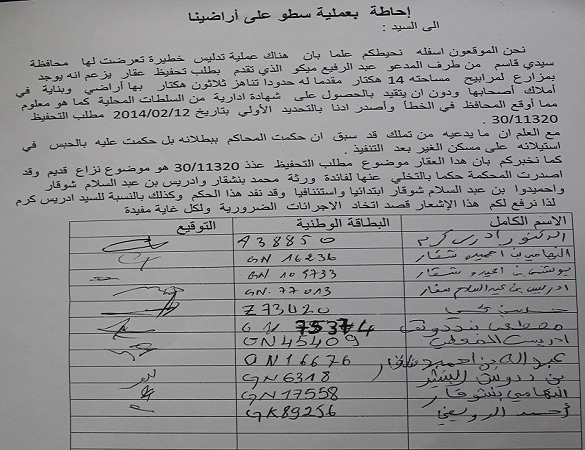 إحاطة بعملية سطو على أراضينا
الى السيد :
نحن الموقعون اسفله نحيطكم علما بان هناك عملية تدليس خطيرة تعرضت لها محافظة
سيدي قاسم من طرف المدعو عبد الرفيع ميكو الذي تقدم بطلب تحفيظ عقار يزعم انه يوجد
بمزارع لمرابيح مساحته 14 هكتار مقدما له حدودا تناهز ثلاثون هكتار بها أراضي وبناية في
أملاك أصحابها ودون ان يتقيد بالحصول على شهادة ادارية من السلطات المحلية كما هو معلوم
مما أوقع المحافظ في الخطأ وأصدر اذنا بالتحديد الأولي بتاريخ 2014/02/12 مطلب التحفيظ
30/11320 .
مع العلم ان ما يدعيه من تملك قد سبق ان حكمت المحاكم ببطلانه بل حكمت عليه بالحبس في
استيلائه على مسكن الغير بعد التنفيذ .
كما نخبركم بان هذا العقار موضوع مطلب التحفيظ عدد 30/11320 هو موضوع نزاع قديم وقد
اصدرت المحكمة حكما بالتخلي عنها لفائدة ورثة محمد بنشقار وادريس بن عبد السلام شوقار
واحميدوا بن عبد السلام شوقار ابتدائيا واستئنافيا وقد نفد هذا الحكم وكذلك بالنسبة للسيد ادريس كرم
لذا نرفع لكم هذا الإشعار قصد اتخاد الاجرانات الضرورية ولكل غاية مفيدة
الاسم الكامل البطاقة الوطنية التوقيع
الدكتور ادريس كرم A38850
التهامي بن احميدو شقار GN 16236
بوشتى بن احميدو شقار GN 105733
ادريس بن عبد السلام شقار GN 77013
Z73420
مصطفى بندروش
ادريس GN45409
عبد الله بن احميدو شقار GN16676
بن دروش البشير GN6318
التهامي بنشوقار GN17558
أحمد الرويفي GK89256